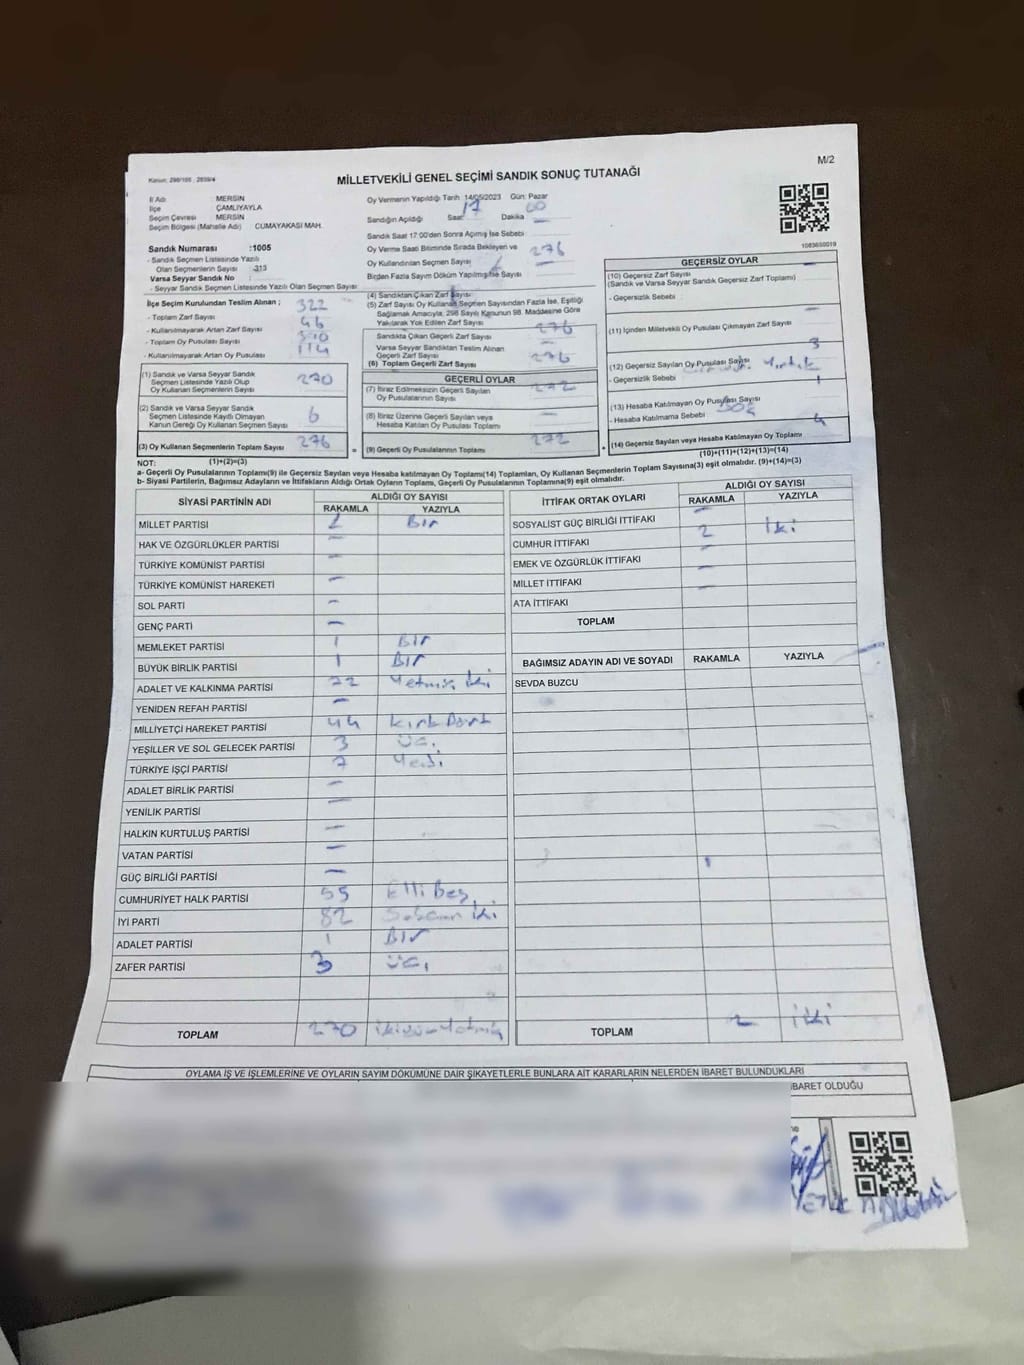 M/2
Kanun: 298/105 , 2839/4
MİLLETVEKİLİ GENEL SEÇİMİ SANDIK SONUÇ TUTANAĞI
İl Adı MERSİN
İlçe ÇAMLIYAYLA
Seçim Çevresi MERSİN
Seçim Bölgesi (Mahalle Adı) CUMAYAKASI MAH.
Sandık Numarası :1005
- Sandık Seçmen Listesinde Yazılı
Olan Seçmenlerin Sayısı :313
Varsa Seyyar Sandık No :
- Seyyar Sandık Seçmen Listesinde Yazılı Olan Seçmen Sayısı
İlçe Seçim Kurulundan Teslim Alınan ;
- Toplam Zarf Sayısı 322
- Kullanılmayarak Artan Zarf Sayısı 46
- Toplam Oy Pusulası Sayısı
- Kullanılmayarak Artan Oy Pusulası 114
(1) Sandık ve Varsa Seyyar Sandık
Seçmen Listesinde Yazılı Olup
Oy Kullanan Seçmenlerin Sayısı 270
(2) Sandık ve Varsa Seyyar Sandık
Seçmen Listesinde Kayıtlı Olmayan
Kanun Gereği Oy Kullanan Seçmen Sayısı 6
(3) Oy Kullanan Seçmenlerin Toplam Sayısı 276
Oy Vermenin Yapıldığı Tarih 14/05/2023 Gün: Pazar
Sandığın Açıldığı Saat 17 Dakika 00
Sandık Saat 17:00'den Sonra Açılmış İse Sebebi
Oy Verme Saati Bitiminde Sırada Bekleyen ve
Oy Kullandırılan Seçmen Sayısı 276
Birden Fazla Sayım Döküm Yapılmış İse Sayısı
(4) Sandıktan Çıkan Zarf Sayısı
(5) Zarf Sayısı Oy Kullanan Seçmen Sayısından Fazla İse, Eşitliği
Sağlamak Amacıyla, 298 Sayılı Kanunun 98. Maddesine Göre
Yakılarak Yok Edilen Zarf Sayısı
Sandıkta Çıkan Geçerli Zarf Sayısı 276
Varsa Seyyar Sandıktan Teslim Alınan
Geçerli Zarf Sayısı –
(6) Toplam Geçerli Zarf Sayısı 276
GEÇERLİ OYLAR
(7) İtiraz Edilmeksizin Geçerli Sayılan
Oy Pusulalarının Sayısı 272
(8) İtiraz Üzerine Geçerli Sayılan veya
Hesaba Katılan Oy Pusulası Toplamı –
(9) Geçerli Oy Pusulalarının Toplamı 272
1083650019
GEÇERSİZ OYLAR
(10) Geçersiz Zarf Sayısı –
(Sandık ve Varsa Seyyar Sandık Geçersiz Zarf Toplamı)
- Geçersizlik Sebebi :
(11) İçinden Milletvekili Oy Pusulası Çıkmayan Zarf Sayısı –
(12) Geçersiz Sayılan Oy Pusulası Sayısı 3
- Geçersizlik Sebebi : Yırtık
(13) Hesaba Katılmayan Oy Pusulası Sayısı 1
- Hesaba Katılmama Sebebi
(14) Geçersiz Sayılan veya Hesaba Katılmayan Oy Toplamı 4
NOT: (1)+(2)=(3)
(10)+(11)+(12)+(13)=(14)
a- Geçerli Oy Pusulalarının Toplamı(9) ile Geçersiz Sayılan veya Hesaba katılmayan Oy Toplamı(14) Toplamları, Oy Kullanan Seçmenlerin Toplam Sayısına(3) eşit olmalıdır. (9)+(14)=(3)
b- Siyasi Partilerin, Bağımsız Adayların ve İttifakların Aldığı Ortak Oyların Toplamı, Geçerli Oy Pusulalarının Toplamına(9) eşit olmalıdır.
SİYASİ PARTİNİN ADI ALDIĞI OY SAYISI
RAKAMLA YAZIYLA
MİLLET PARTİSİ 1 Bir
HAK VE ÖZGÜRLÜKLER PARTİSİ –
TÜRKİYE KOMÜNİST PARTİSİ –
TÜRKİYE KOMÜNİST HAREKETİ –
SOL PARTİ –
GENÇ PARTİ –
MEMLEKET PARTİSİ 1 Bir
BÜYÜK BİRLİK PARTİSİ 1 Bir
ADALET VE KALKINMA PARTİSİ 72 Yetmiş iki
YENİDEN REFAH PARTİSİ –
MİLLİYETÇİ HAREKET PARTİSİ 44 Kırk Dört
YEŞİLLER VE SOL GELECEK PARTİSİ 3 üç
TÜRKİYE İŞÇİ PARTİSİ 7 Yedi
ADALET BİRLİK PARTİSİ –
YENİLİK PARTİSİ –
HALKIN KURTULUŞ PARTİSİ –
VATAN PARTİSİ –
GÜÇ BİRLİĞİ PARTİSİ –
CUMHURİYET HALK PARTİSİ 55 Elli Beş
İYİ PARTİ 82 Seksen iki
ADALET PARTİSİ 1 Bir
ZAFER PARTİSİ 3 üç
TOPLAM 270 ikiyüz Yetmiş
İTTİFAK ORTAK OYLARI ALDIĞI OY SAYISI
RAKAMLA YAZIYLA
SOSYALİST GÜÇ BİRLİĞİ İTTİFAKI –
CUMHUR İTTİFAKI 2 iki
EMEK VE ÖZGÜRLÜK İTTİFAKI –
MİLLET İTTİFAKI –
ATA İTTİFAKI –
TOPLAM
BAĞIMSIZ ADAYIN ADI VE SOYADI RAKAMLA YAZIYLA
SEVDA BUZCU
TOPLAM 2 iki
OYLAMA İŞ VE İŞLEMLERİNE VE OYLARIN SAYIM DÖKÜMÜNE DAİR ŞİKAYETLERLE BUNLARA AİT KARARLARIN NELERDEN İBARET BULUNDUKLARI
İBARET OLDUĞU